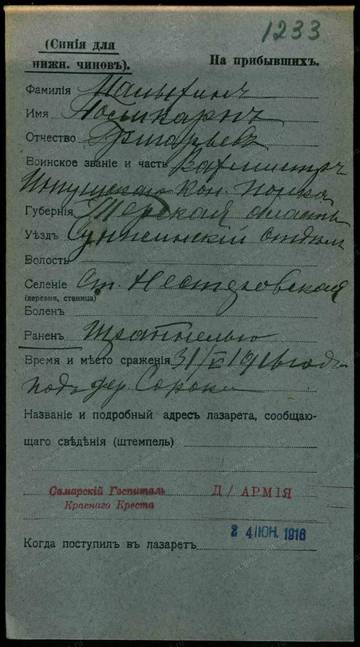 1233
(Синія для
нижн. чиновъ).
На прибывшихъ.
Фамилія
Имя
Отчество
Воинское званіе и часть
Кон. полка
Губернія Терская область
Уѣздъ Сунженскій отдѣл
Волость
Селеніе ст. Нестеровская
(деревня, станица)
Боленъ
Раненъ шрапнелью
Время и мѣсто сраженія 31/ 1916 год
подъ дер. Сороки
Названіе и подробный адресъ лазарета, сообщаю-
щаго свѣдѣнія (штемпель)
Самарскій Госпиталь
Краснаго Креста
Д/АРМІЯ
2 4 ІЮН. 1916
Когда поступилъ въ лазаретъ